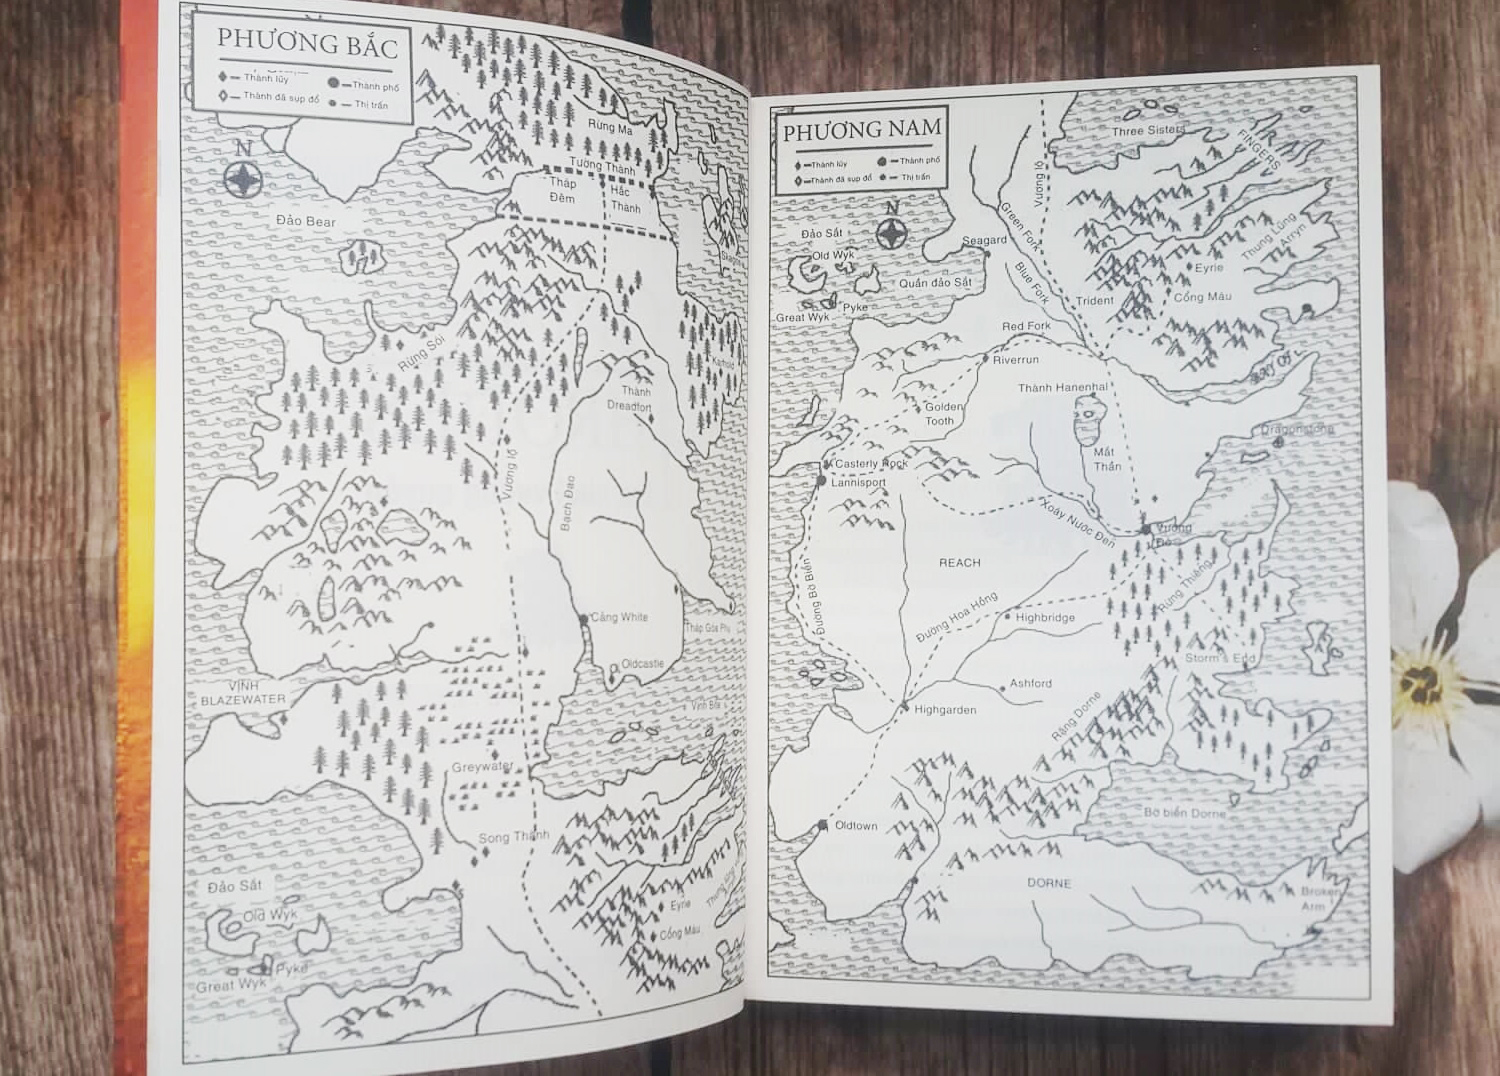 PHƯƠNG BẮC
Thành lũy
Thành phố
Thành đã sụp đổ
Thị trấn
N
Rừng Ma
Tường Thành
Tháp
Đêm
Hắc
Thành
Đảo Bear
Skagos
Rừng Sói
Karhold
Thành
Dreadfort
Vương lộ
Bạch Đao
Cảng White
Tháp Góa Phụ
Oldcastle
VỊNH
BLAZEWATER
Greywater
Song Thành
Đảo Sắt
Old Wyk
Pyke
Great Wyk
Eyrie
Cổng Máu
PHƯƠNG NAM
Thành lũy
Thành phố
Thành đã sụp đổ
Thị trấn
N
Three Sisters
FINGERS
Vương lộ
Green Fork
Thung Lũng
Arryn
Đảo Sắt
Seagard
Old Wyk
Blue Fork
Eyrie
Quần đảo Sắt
Trident
Cổng Máu
Pyke
Great Wyk
Red Fork
Riverrun
Thành Harrenhal
Golden
Tooth
Dragonstone
Mắt
Thần
Casterly Rock
Lannisport
Xoáy Nước Đen
Vương
Đô
REACH
Đường Bờ Biển
Rừng Thiêng
Đường Hoa Hồng
Highbridge
Storm's End
Ashford
Highgarden
Rặng Dorne
Oldtown
Bờ biển Dorne
DORNE
Broken
Arm